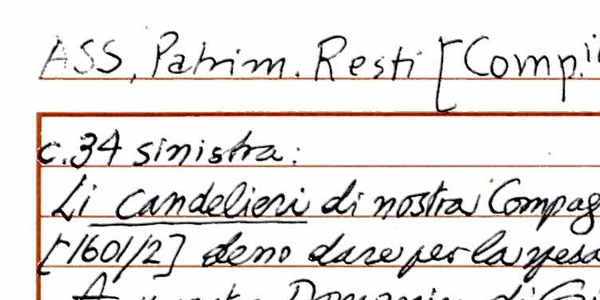 ASS, Patrim. Resti [Comp.
c. 34 sinistra:
Li candelieri di nostra Compag
[1601/2] deno dare per la
A Domenico di